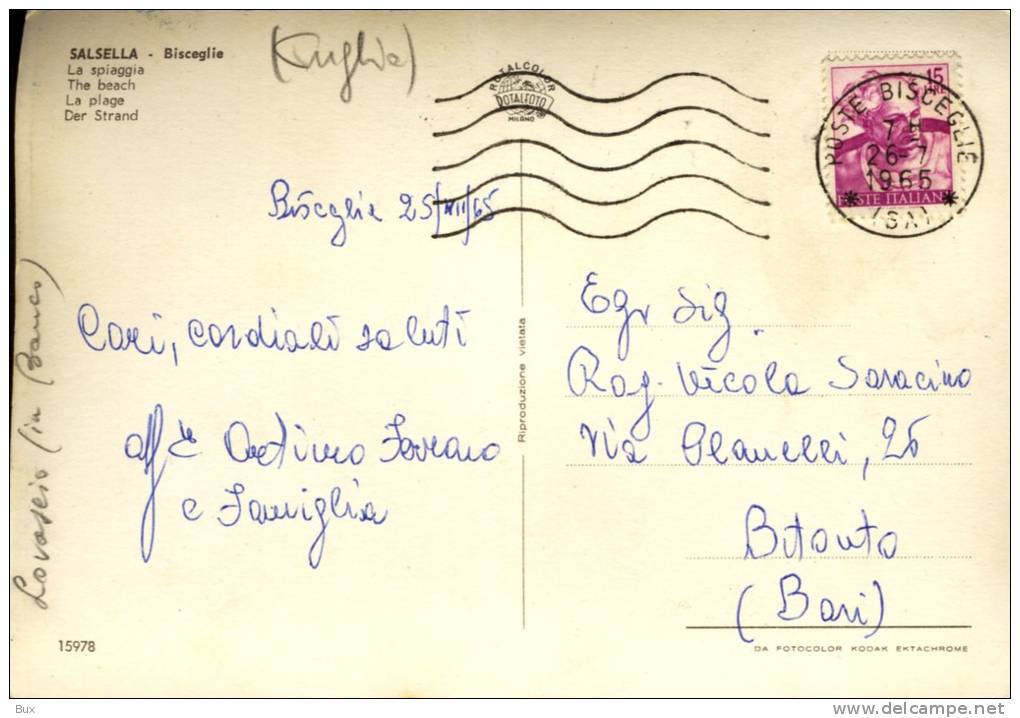 SALSELLA - Bisceglie
La spiaggia
The beach
La plage
Der Strand
(Puglia)
ROTALCOLOR
ROTALFOTO
MILANO
15
POSTE BISCEGLIE
7 H
26-7
1965
* (BA) *
POSTE ITALIANE
Bisceglie 25/VII/65
Cari, cordiali saluti
aff
e Famiglia
Riproduzione vietata
Egr Sig.
Rag. Nicola Saracino
Via Planelli, 25
Bitonto
(Bari)
(in Banco)
15978
DA FOTOCOLOR KODAK EKTACHROME
Bux
www.delcampe.net